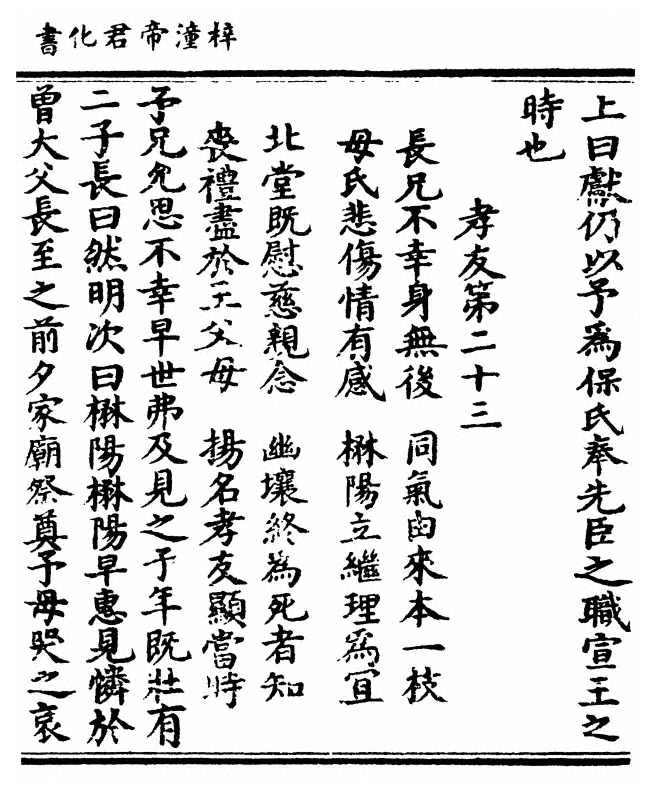 梓潼帝君化書
上曰獻仍以予為保氏奉先臣之職宣王之
時也
孝友第二十三
長兄不幸身無後　同氣由來本一枝
母氏悲傷情有感　楙陽立繼理為宜
北堂既慰慈親念　幽壤終為死者知
喪禮盡於王父母　揚名孝友顯當時
予兄允思不幸早世弗及見之予年既壯有
二子長曰然明次曰楙陽楙陽早惠見憐於
曾大父長至之前夕家廟祭奠予母哭之哀